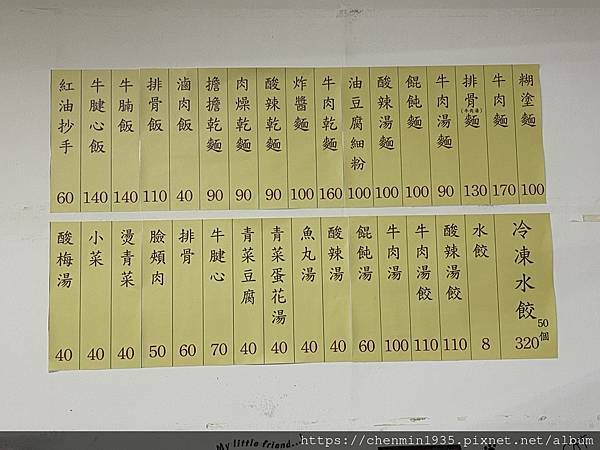 糊塗麵 100
牛肉麵 170
排骨麵(牛肉湯) 130
牛肉湯麵 90
餛飩麵 100
酸辣湯麵 100
油豆腐細粉 100
牛肉乾麵 160
炸醬麵 100
酸辣乾麵 90
肉燥乾麵 90
擔擔乾麵 90
滷肉飯 40
排骨飯 110
牛腩飯 140
牛腱心飯 140
紅油抄手 60
冷凍水餃 50個 320
水餃 8
酸辣湯餃 110
牛肉湯餃 110
牛肉湯 100
餛飩湯 60
酸辣湯 40
魚丸湯 40
青菜蛋花湯 40
青菜豆腐 40
牛腱心 70
排骨 60
臉頰肉 50
燙青菜 40
小菜 40
酸梅湯 40
My little friend...
https://chenmin1935.pixnet.net/album